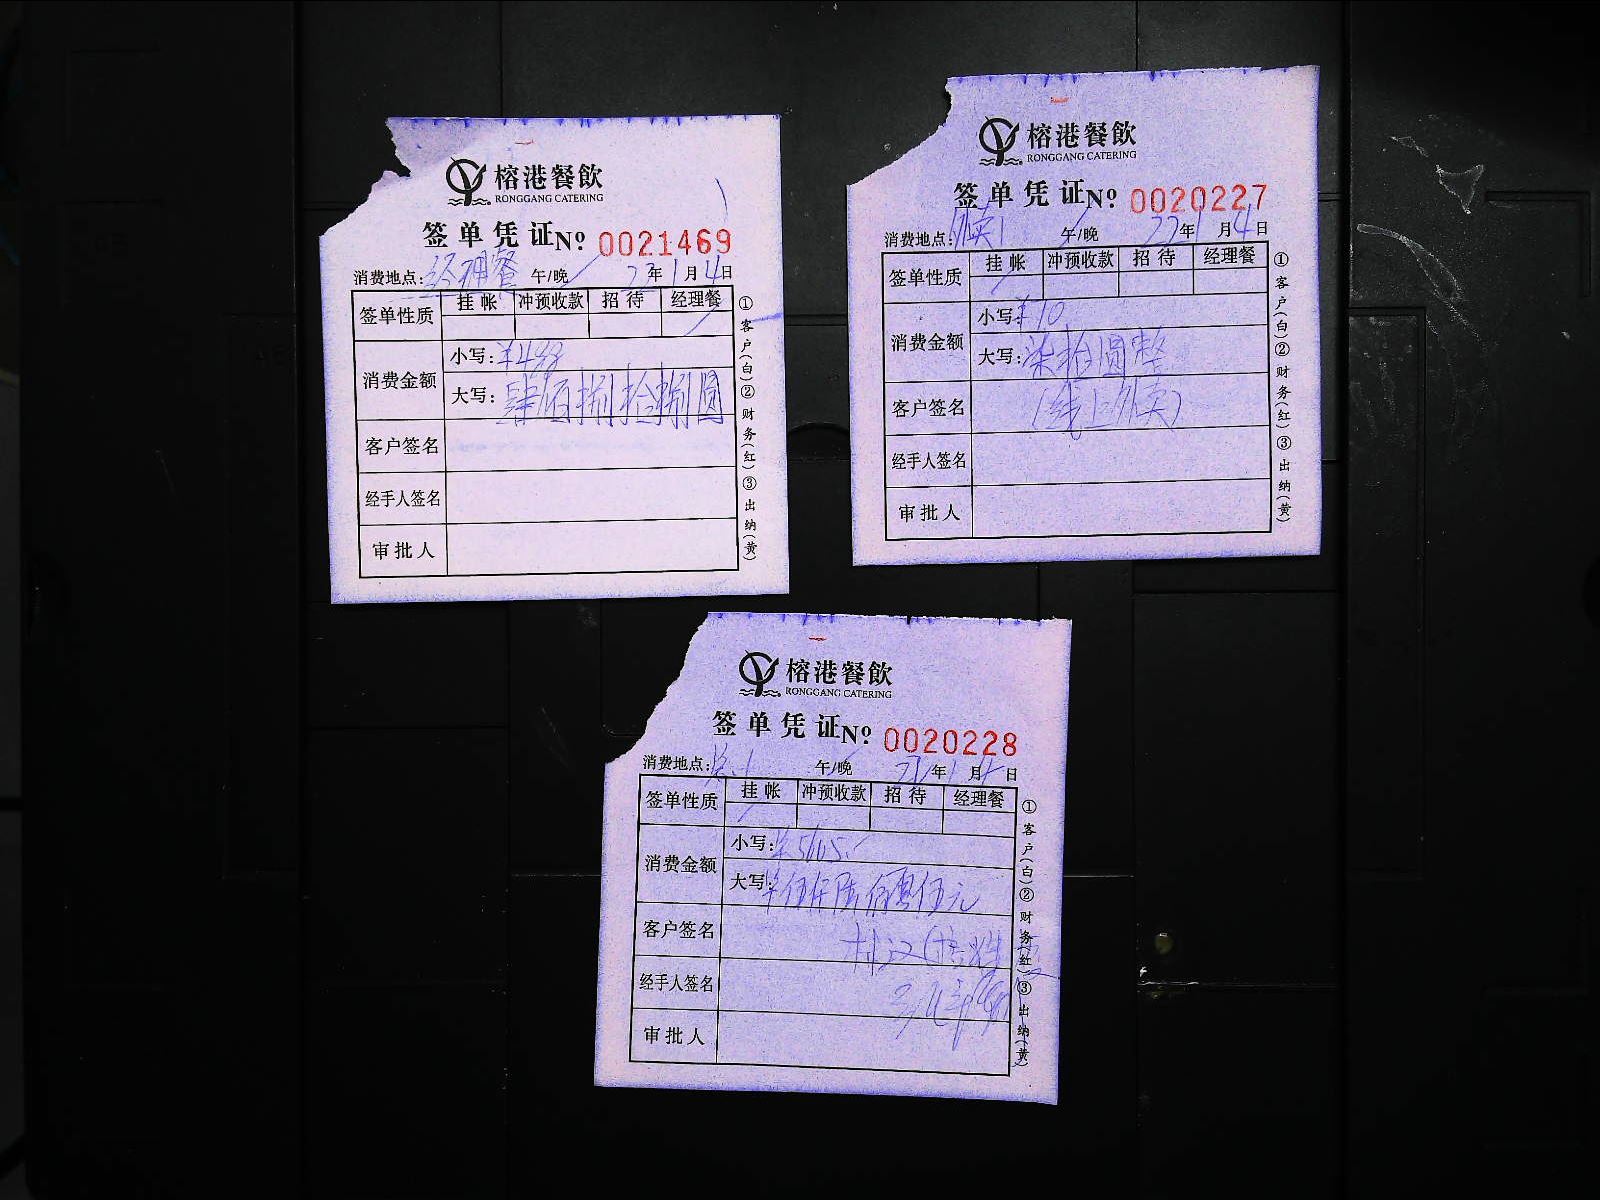 榕港餐飲
RONGGANG CATERING
签单凭证 Nº 0021469
消费地点: 经理餐 午/晚 22年1月4日
签单性质 挂帐 冲预收款 招待 经理餐
消费金额 小写: ¥488
大写: 肆佰捌拾捌圆
客户签名
经手人签名
审批人
①客户(白)②财务(红)③出纳(黄)
榕港餐飲
RONGGANG CATERING
签单凭证 Nº 0020227
消费地点: 外卖 午/晚 22年1月4日
签单性质 挂帐 冲预收款 招待 经理餐
消费金额 小写: ¥70
大写: 柒拾圆整
客户签名 (线上外卖)
经手人签名
审批人
①客户(白)②财务(红)③出纳(黄)
榕港餐飲
RONGGANG CATERING
签单凭证 Nº 0020228
消费地点: 午/晚 年1月 日
签单性质 挂帐 冲预收款 招待 经理餐
消费金额 小写: ¥5605
大写: 伍仟陆佰零伍元
客户签名
经手人签名
审批人
①客户(白)②财务(红)③出纳(黄)